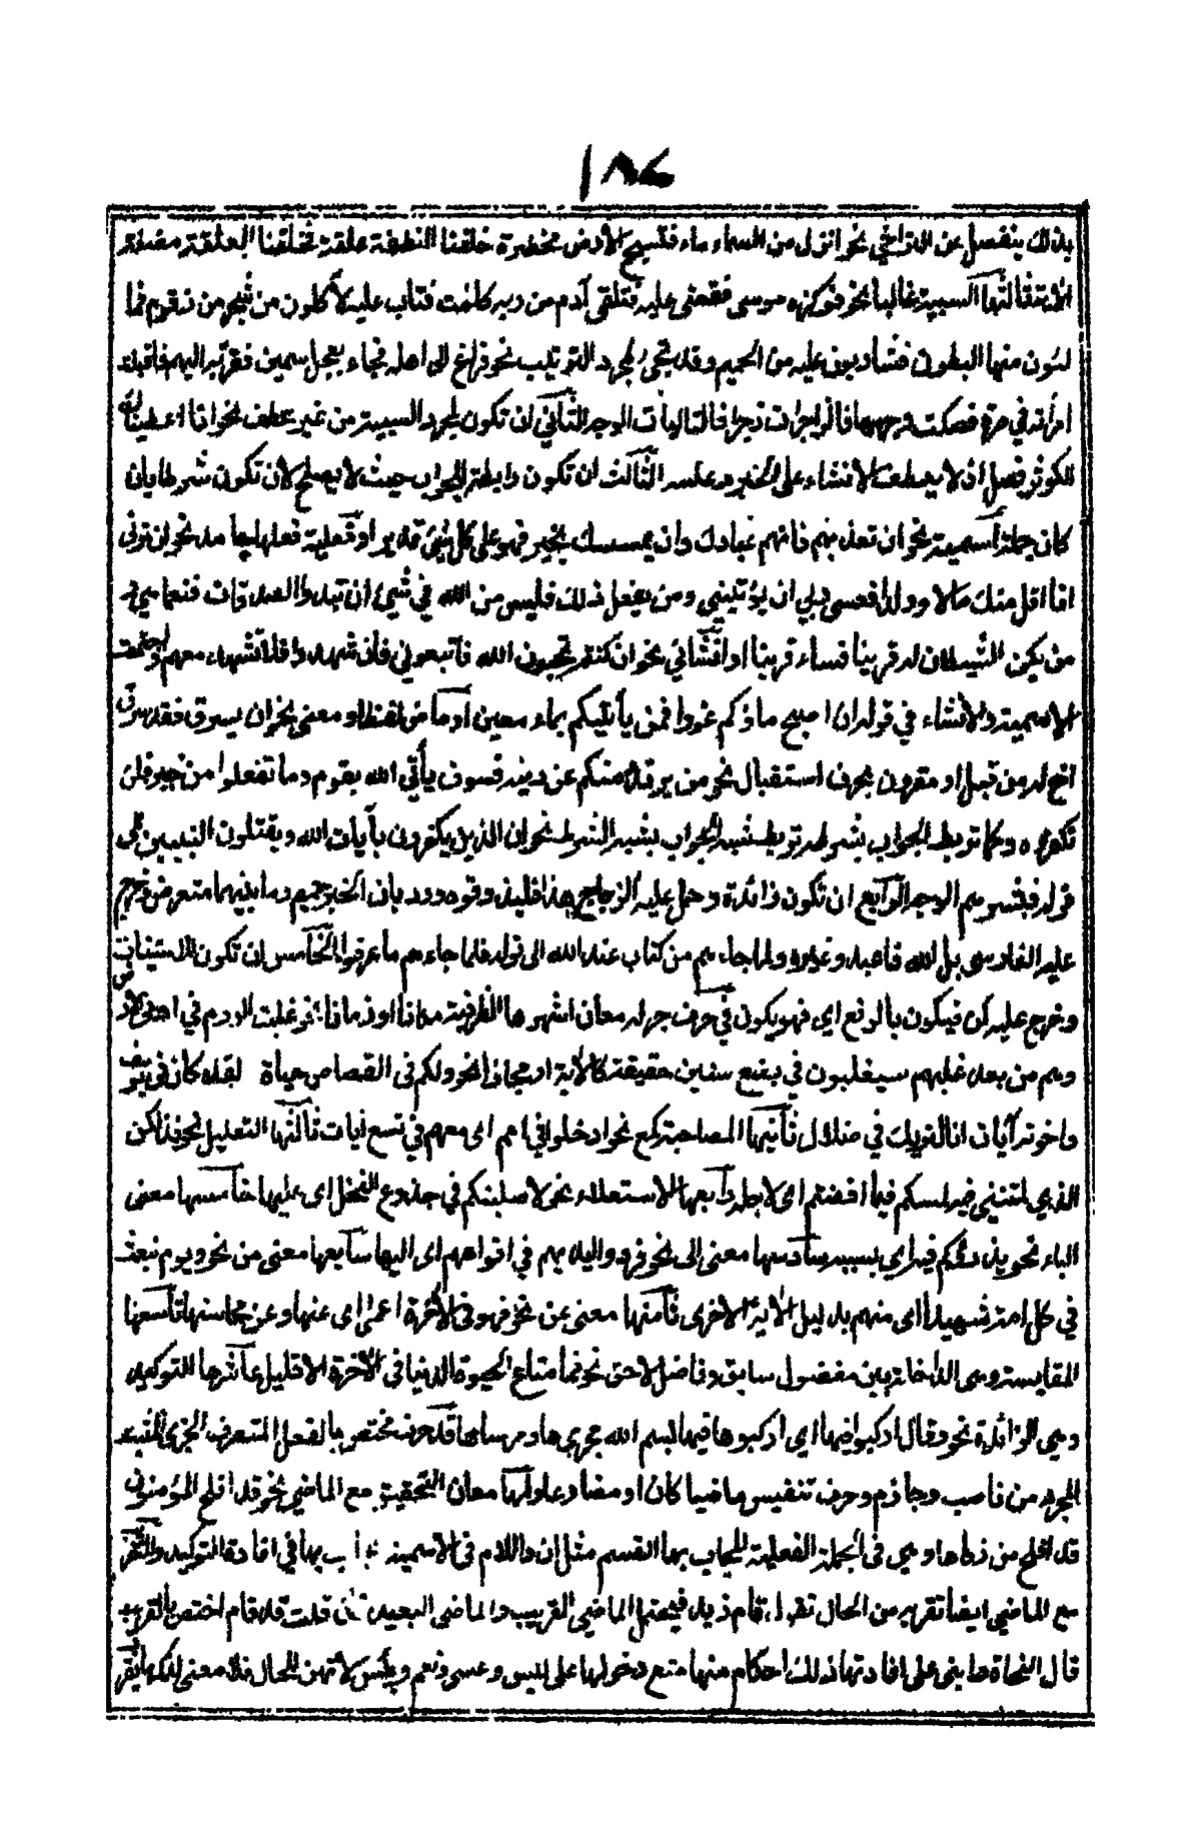 ١٨٤
بذلك ينفصل عن التراخي نحو انزل من السماء ماء فتصبح الارض مخضرة خلقنا النطفة علقة فخلقنا العلقة مضغة
الآية ثالثها السببية غالبا نحو فوكزه موسى فقضى عليه فتلقى آدم من ربه كلمت فتاب عليه لآكلون من شجر من زقوم فما
لئون منها البطون فشاربون عليه من الحميم وقد تجئ لمجرد الترتيب نحو فراغ الى اهله فجاء بعجل سمين فقربه اليهم فاقبلت
امرأته في صرة فصكت وجهها فالزاجرات زجرا فالتاليات الوجه الثاني ان تكون لمجرد السببية من غير عطف نحو انا اعطيناك
الكوثر فصل اذ لا يعطف الانشاء على الخبر وعكسه الثالث ان تكون رابطة للجواب حيث لا يصلح لان تكون شرطا بان
كان جملة اسمية نحو ان تعذبهم فانهم عبادك وان يمسسك بخير فهو على كل شئ قدير او فعلية فعلها جامد نحو ان ترنى
انا اقل منك مالا وولدا فعسى ربي ان يؤتيني ومن يفعل ذلك فليس من الله في شئ ان تبدوا الصدقات فنعما هي و
من يكن الشيطان له قرينا فساء قرينا او انشائي نحو ان كنتم تحبون الله فاتبعوني فان شهدوا فلا تشهد معهم واجتمعت
الاسمية والانشاء في قوله ان اصبح ماؤكم غورا فمن يأتيكم بماء معين او ماض لفظا ومعنى نحو ان يسرق فقد سرق
اخ له من قبل او مقرون بحرف استقبال نحو من يرتد منكم عن دينه فسوف يأتي الله بقوم وما تفعلوا من خير فلن
تكفروه وكما تربط الجواب بشرطه تربط شبه الجواب بشبه الشرط نحو ان الذين يكفرون بآيات الله ويقتلون النبيين الى
قوله فبشرهم الوجه الرابع ان تكون زائدة وحمل عليه الزجاج هذا فليذوقوه ورد بان الخبر حميم وما بينهما معترض وخرج
عليه الفارسى بل الله فاعبد وغيره ولما جاءهم من كتاب عند الله الى قوله فلما جاءهم ما عرفوا الخامس ان تكون للاستيناف
وخرج عليه كن فيكون بالرفع اى فهو يكون في حرف جر له معان اشهرها الظرفية مكانا او زمانا نحو غلبت الروم في ادنى الارض
وهم من بعد غلبهم سيغلبون في بضع سنين حقيقة كالآية او مجازا نحو ولكم فى القصاص حياة لقد كان فى يوسف
واخوته آيات انا لنريك في ضلال ثانيها المصاحبة كمع نحو ادخلوا في امم اى معهم في تسع ايات ثالثها التعليل نحو فذلكن
الذي لمتنني فيه لمسكم فيما افضتم اى لاجله رابعها الاستعلاء نحو لاصلبنكم في جذوع النخل اى عليها خامسها معنى
الباء نحو يذرؤكم فيه اي بسببه سادسها معنى الى نحو فردوا ايديهم في افواههم اى اليها سابعها معنى من نحو ويوم نبعث
في كل امة شهيدا اى منهم بدليل الآية الاخرى ثامنها معنى عن نحو فهو فى الآخرة اعمى اى عنها وعن محاسنها تاسعها
المقايسة وهى الداخلة بين مفضول سابق وفاضل لاحق نحو فما متاع الحيوة الدنيا في الآخرة الا قليل عاشرها التوكيد
وهي الزائدة نحو وقال اركبوا فيها اي اركبوها فيها بسم الله مجريها ومرساها قد حرف مختص بالفعل المتصرف الخبري المثبت
المجرد من ناصب وجازم وحرف تنفيس ماضيا كان او مضارعا ولها معان التحقيق مع الماضي نحو قد افلح المؤمنون
قد افلح من زكاها وهي فى الجملة الفعلية المجاب بها القسم مثل ان واللام فى الاسمية بها في افادة التوكيد والتقريب
مع الماضي ايضا تقربه من الحال تقول قام زيد فيحتمل الماضي القريب والماضى البعيد فان قلت قد قام اختص بالقريب
قال النحاة وابنى على افادتها ذلك احكام منها منع دخولها على ليس وعسى ونعم وبئس لانهن للحال فلا معنى لذكر ما يقرب